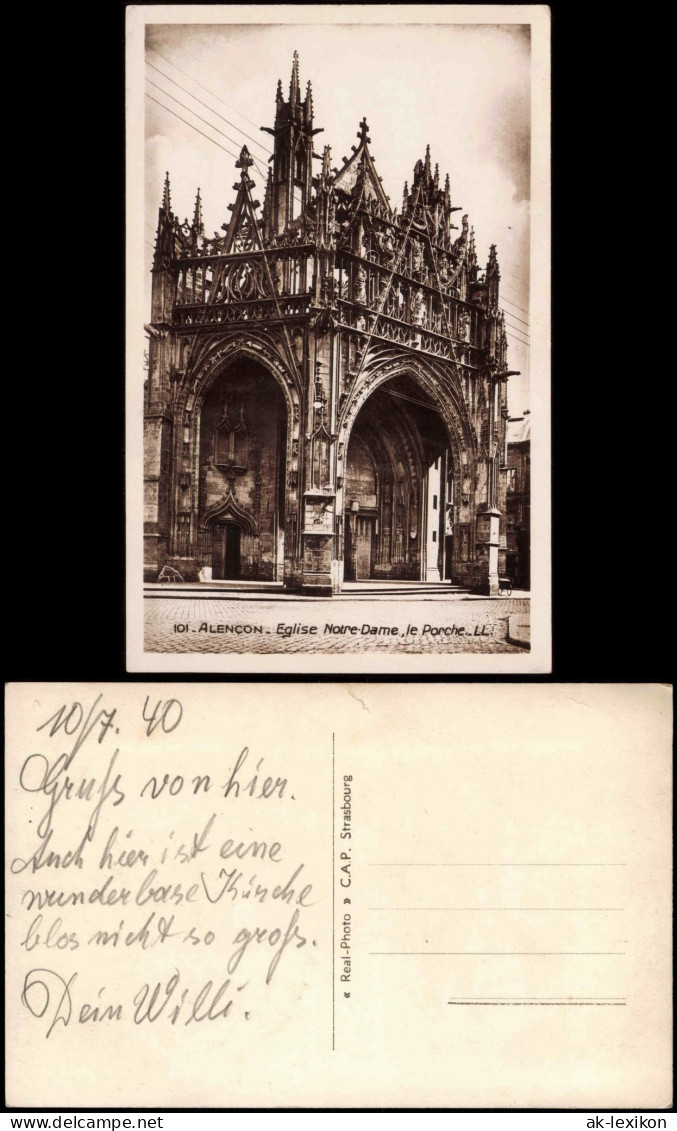 101 - ALENÇON - Eglise Notre-Dame, le Porche - LL.
10/7. 40
Gruß von hier.
Auch hier ist eine
wunderbare Kirche
blos nicht so groß.
Dein Willi.
« Real-Photo » C.A.P. Strasbourg
ak-lexikon